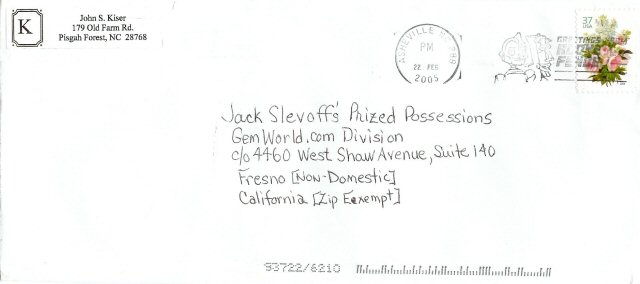 K
John S. Kiser
179 Old Farm Rd.
Pisgah Forest, NC 28768
ASHEVILLE
PM
22 FEB
2005
37
USA
GREETINGS FROM
Jack Slevoff's Prized Possessions
GemWorld.com Division
c/o 4460 West Shaw Avenue, Suite 140
Fresno [Non-Domestic]
California [Zip Exempt]
93722/6210